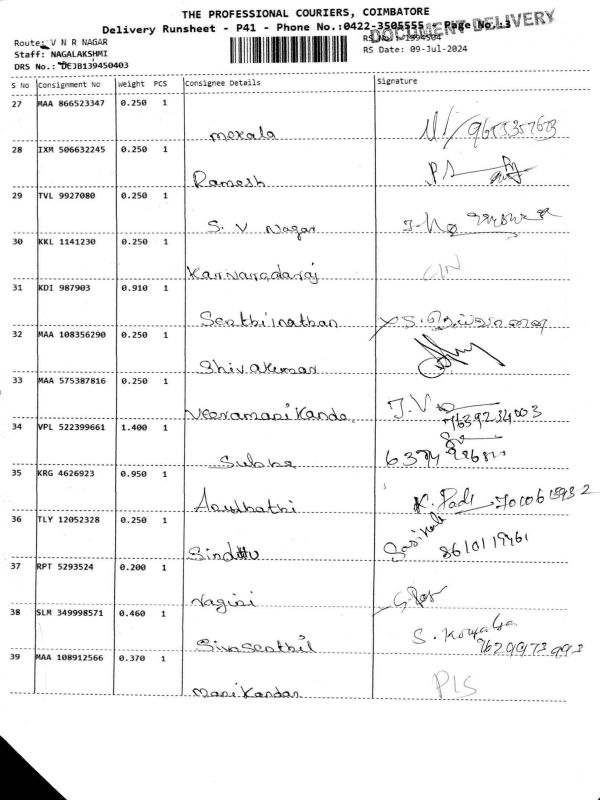 THE PROFESSIONAL COURIERS, COIMBATORE
DOCUMENT DELIVERY
Delivery Runsheet - P41 - Phone No.:0422-3505555 Page No.:3
Route: V N R NAGAR
Staff: NAGALAKSHMI
RS Date: 09-Jul-2024
DRS No.: DEJB139450403
S No Consignment No Weight PCS Consignee Details Signature
27 MAA 866523347 0.250 1
mekala
28 IXM 506632245 0.250 1
Ramesh PS
29 TVL 9927080 0.250 1
S. V Nagar
30 KKL 1141230 0.250 1
31 KDI 987903 0.910 1
Senthilnathan
32 MAA 108356290 0.250 1
Shivakumar
33 MAA 575387816 0.250 1
Veeramanikanda
7639234003
34 VPL 522399661 1.400 1
35 KRG 4626923 0.950 1
Arulhathi K. Padi
36 TLY 12052328 0.250 1
Sasikala
8610119461
Sindhu
37 RPT 5293524 0.200 1
Nagini
38 SLM 349998571 0.460 1
Sivasenthil
39 MAA 108912566 0.370 1
manikandan PLS